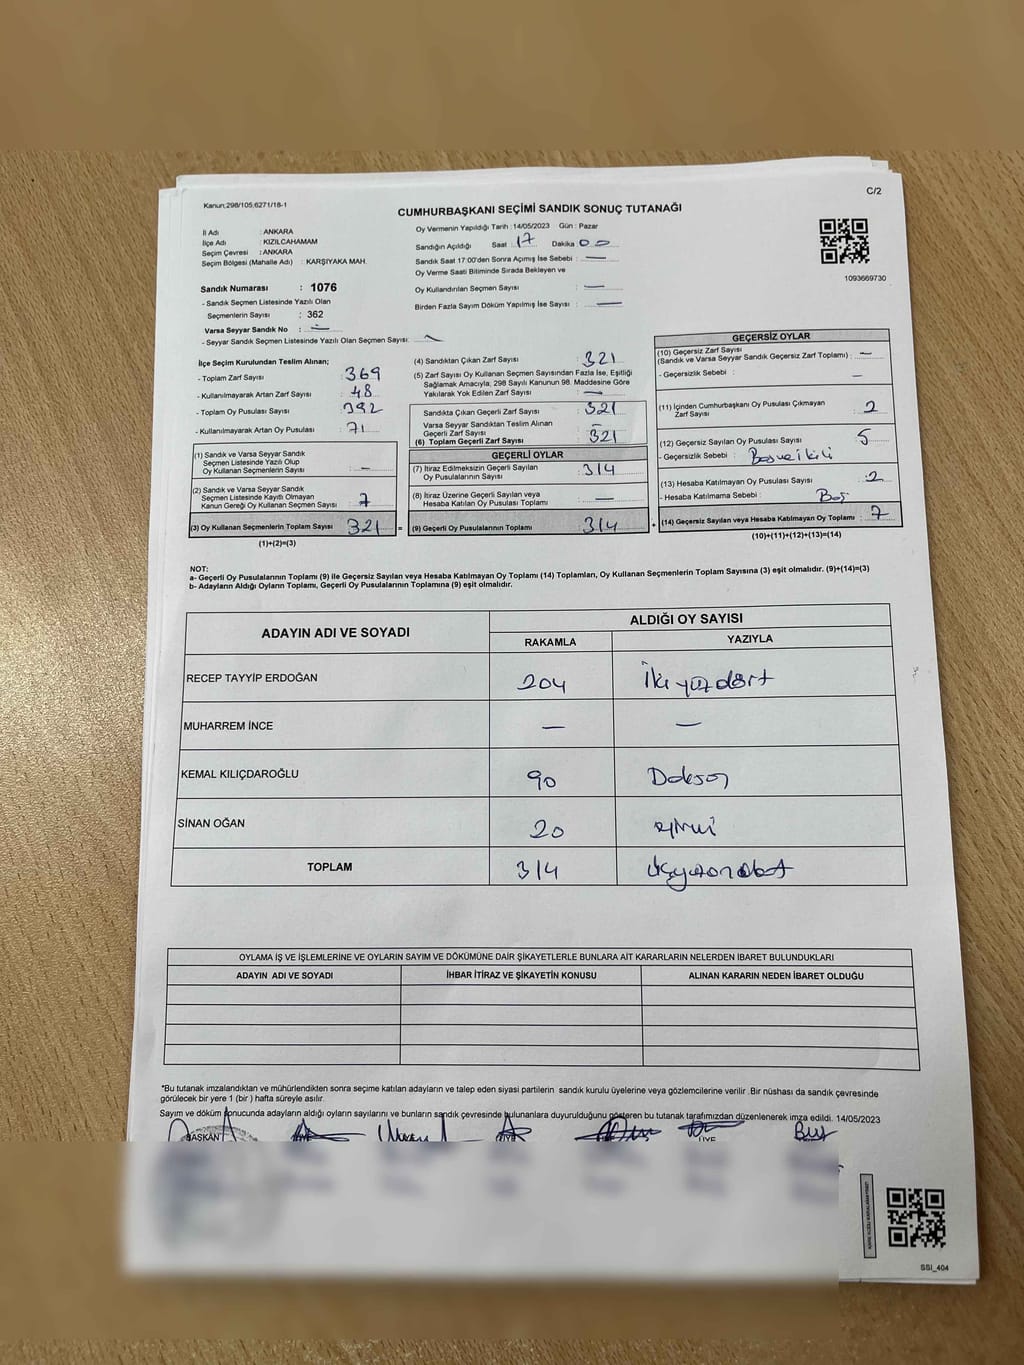 Kanun;298/105;6271/18-1
C/2
CUMHURBAŞKANI SEÇİMİ SANDIK SONUÇ TUTANAĞI
İl Adı : ANKARA
İlçe Adı : KIZILCAHAMAM
Seçim Çevresi : ANKARA
Seçim Bölgesi (Mahalle Adı) : KARŞIYAKA MAH.
Sandık Numarası : 1076
- Sandık Seçmen Listesinde Yazılı Olan
Seçmenlerin Sayısı : 362
Varsa Seyyar Sandık No : —
- Seyyar Sandık Seçmen Listesinde Yazılı Olan Seçmen Sayısı:
Oy Vermenin Yapıldığı Tarih :14/05/2023 Gün : Pazar
Sandığın Açıldığı Saat 17 Dakika 00
Sandık Saat 17:00'den Sonra Açımış İse Sebebi : —
Oy Verme Saati Bitiminde Sırada Bekleyen ve
Oy Kullandırılan Seçmen Sayısı : —
Birden Fazla Sayım Döküm Yapılmış İse Sayısı : —
1093669730
İlçe Seçim Kurulundan Teslim Alınan;
- Toplam Zarf Sayısı : 369
- Kullanılmayarak Artan Zarf Sayısı : 48
- Toplam Oy Pusulası Sayısı : 392
- Kullanılmayarak Artan Oy Pusulası : 71
(1) Sandık ve Varsa Seyyar Sandık
Seçmen Listesinde Yazılı Olup
Oy Kullanan Seçmenlerin Sayısı : —
(2) Sandık ve Varsa Seyyar Sandık
Seçmen Listesinde Kayıtlı Olmayan
Kanun Gereği Oy Kullanan Seçmen Sayısı : 7
(3) Oy Kullanan Seçmenlerin Toplam Sayısı : 321 =
(1)+(2)=(3)
(4) Sandıktan Çıkan Zarf Sayısı : 321
(5) Zarf Sayısı Oy Kullanan Seçmen Sayısından Fazla İse, Eşitliği
Sağlamak Amacıyla, 298 Sayılı Kanunun 98. Maddesine Göre
Yakılarak Yok Edilen Zarf Sayısı : —
Sandıkta Çıkan Geçerli Zarf Sayısı : 321
Varsa Seyyar Sandıktan Teslim Alınan
Geçerli Zarf Sayısı : —
(6) Toplam Geçerli Zarf Sayısı : 321
GEÇERLİ OYLAR
(7) İtiraz Edilmeksizin Geçerli Sayılan
Oy Pusulasının Sayısı : 314
(8) İtiraz Üzerine Geçerli Sayılan veya
Hesaba Katılan Oy Pusulası Toplamı : —
(9) Geçerli Oy Pusulalarının Toplamı : 314 +
GEÇERSİZ OYLAR
(10) Geçersiz Zarf Sayısı
(Sandık ve Varsa Seyyar Sandık Geçersiz Zarf Toplamı) : —
- Geçersizlik Sebebi : —
(11) İçinden Cumhurbaşkanı Oy Pusulası Çıkmayan
Zarf Sayısı : 2
(12) Geçersiz Sayılan Oy Pusulası Sayısı : 5
- Geçersizlik Sebebi :
(13) Hesaba Katılmayan Oy Pusulası Sayısı : 2
- Hesaba Katılmama Sebebi : Boş
(14) Geçersiz Sayılan veya Hesaba Katılmayan Oy Toplamı : 7
(10)+(11)+(12)+(13)=(14)
NOT:
a- Geçerli Oy Pusulalarının Toplamı (9) ile Geçersiz Sayılan veya Hesaba Katılmayan Oy Toplamı (14) Toplamları, Oy Kullanan Seçmenlerin Toplam Sayısına (3) eşit olmalıdır. (9)+(14)=(3)
b- Adayların Aldığı Oyların Toplamı, Geçerli Oy Pusulalarının Toplamına (9) eşit olmalıdır.
ADAYIN ADI VE SOYADI
ALDIĞI OY SAYISI
RAKAMLA YAZIYLA
RECEP TAYYİP ERDOĞAN 204 İkiyüzdört
MUHARREM İNCE — —
KEMAL KILIÇDAROĞLU 90 Doksan
SİNAN OĞAN 20 yirmi
TOPLAM 314 üçyüzondört
OYLAMA İŞ VE İŞLEMLERİNE VE OYLARIN SAYIM VE DÖKÜMÜNE DAİR ŞİKAYETLERLE BUNLARA AİT KARARLARIN NELERDEN İBARET BULUNDUKLARI
ADAYIN ADI VE SOYADI İHBAR İTİRAZ VE ŞİKAYETİN KONUSU ALINAN KARARIN NEDEN İBARET OLDUĞU
*Bu tutanak imzalandıktan ve mühürlendikten sonra seçime katılan adayların ve talep eden siyasi partilerin sandık kurulu üyelerine veya gözlemcilerine verilir .Bir nüshası da sandık çevresinde
görülecek bir yere 1 (bir ) hafta süreyle asılır.
Sayım ve döküm sonucunda adayların aldığı oyların sayılarını ve bunların sandık çevresinde bulunanlara duyurulduğunu gösteren bu tutanak tarafımızdan düzenlenerek imza edildi. 14/05/2023
BAŞKAN
ÜYE
SSI_404